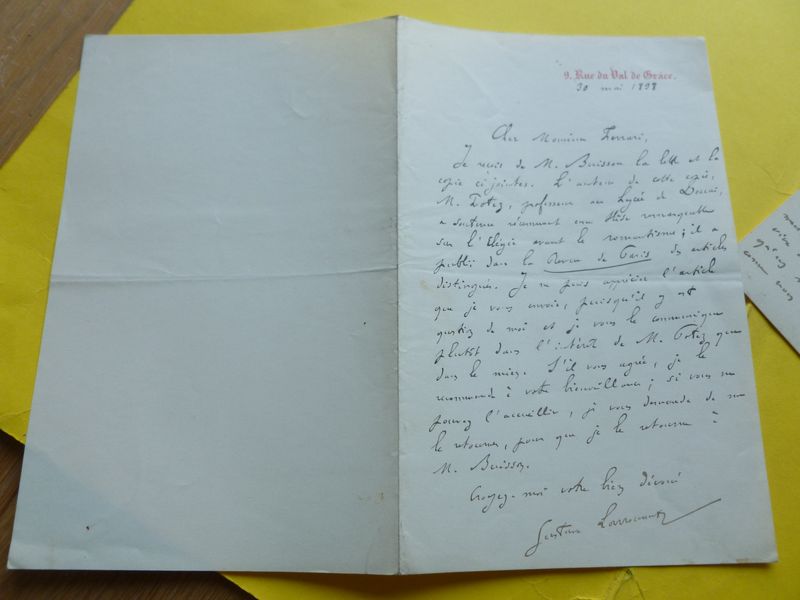 9. Rue du Val de Grâce.
30 mai 1898
Cher Monsieur Ferrari,
Je reçois de M. Buisson la lettre et la
copie ci jointes. L'auteur de cette copie,
M. Potez, professeur au Lycée de Douai,
a soutenu récemment une thèse remarquable
sur l'Elégie avant le romantisme ; il a
publié dans la Revue de Paris des articles
distingués. Je ne puis apprécier l'article
que je vous envoie, puisqu'il y est
question de moi et je vous le communique
plutôt dans l'intérêt de M. Potez que
dans le mien. S'il vous agrée, je le
recommande à votre bienveillance ; si vous ne
pouvez l'accueillir, je vous demande de me
le retourner, pour que je le retourne à
M. Buisson.
Croyez-moi votre bien dévoué
Gustave Larroumet